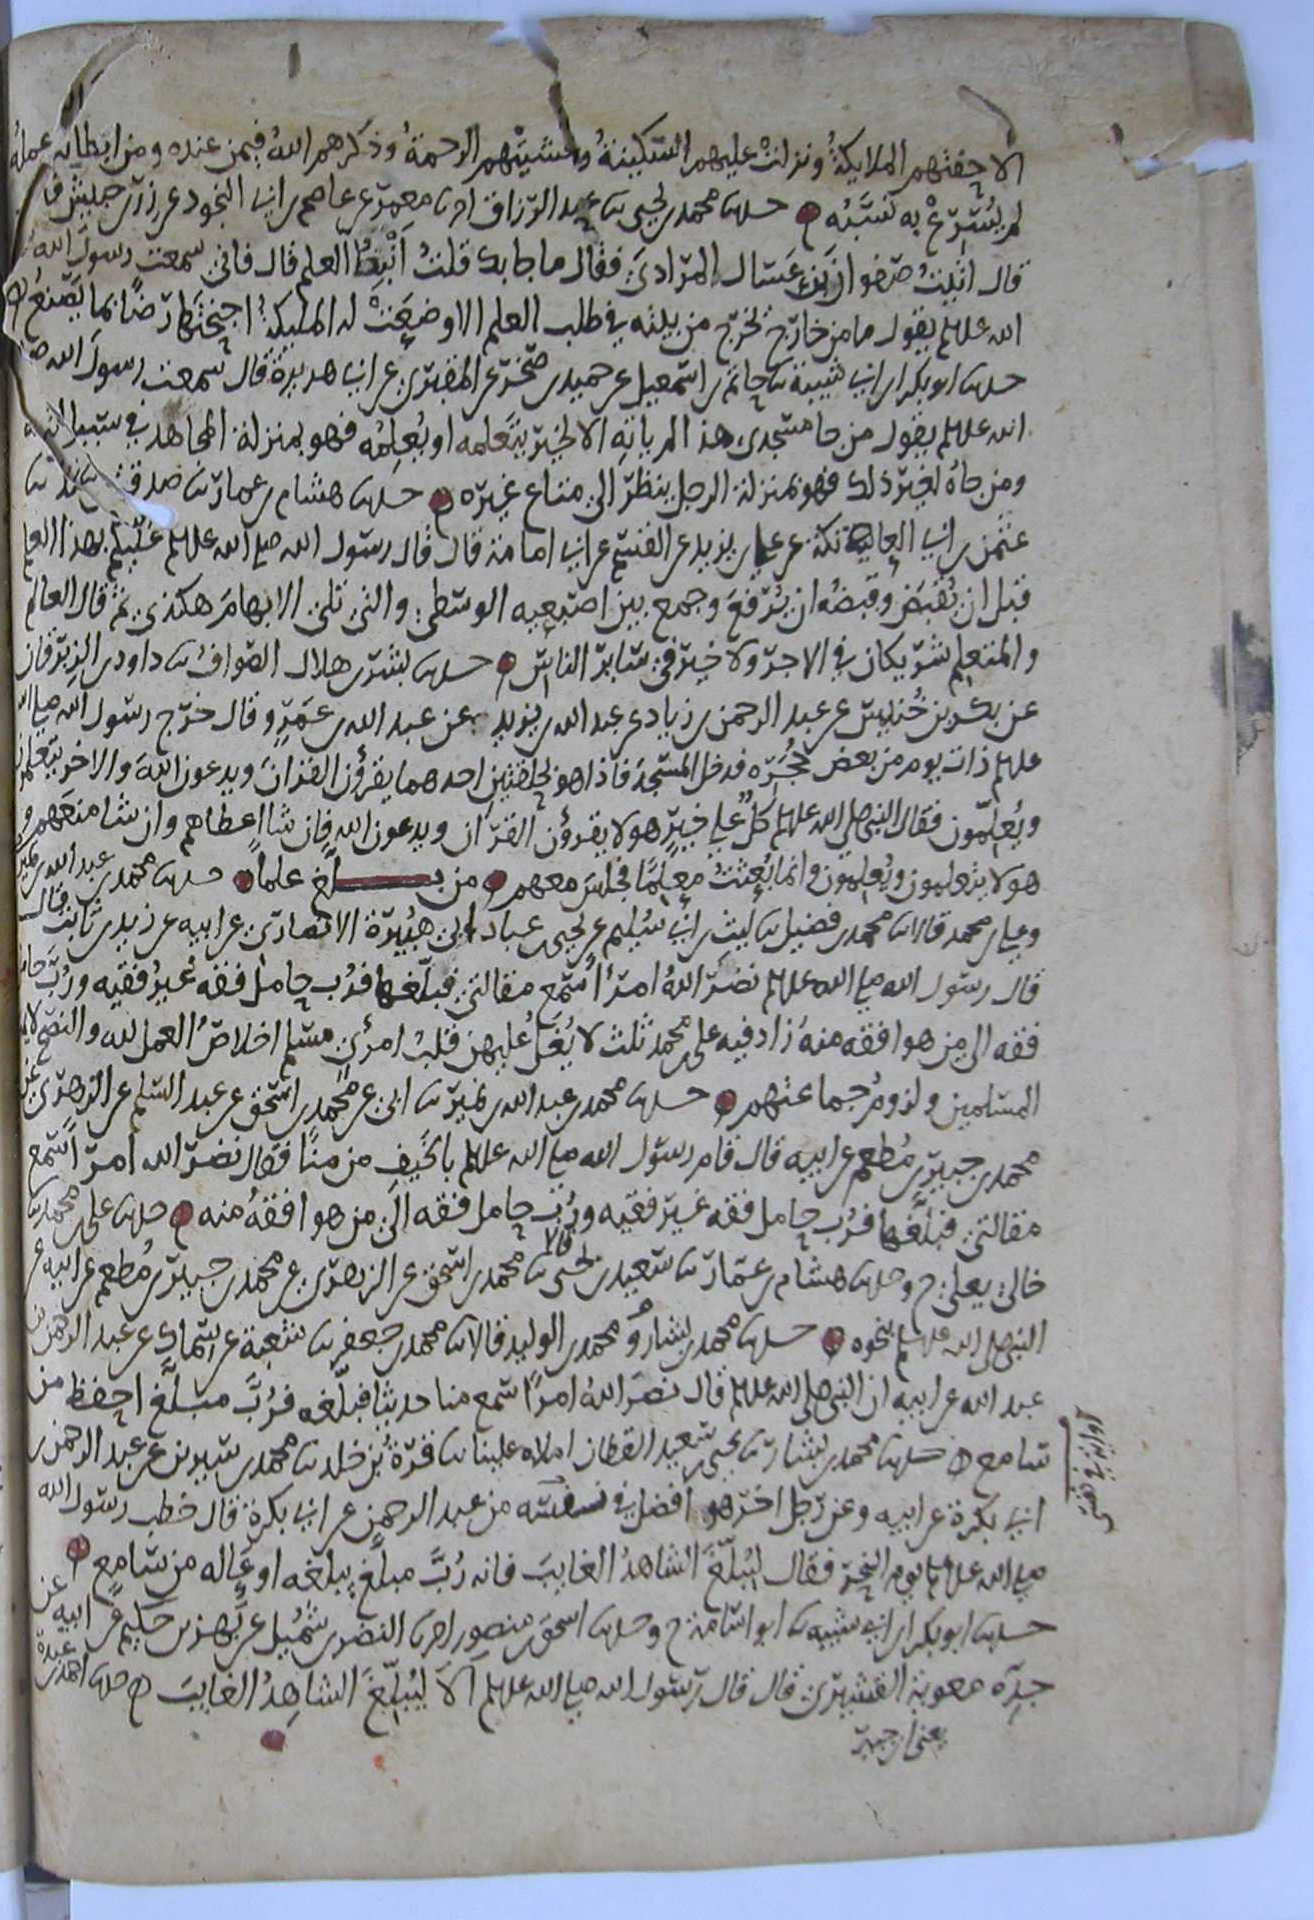 الا حفتهم الملايكةُ ونزلتْ عليهم السَّكينةُ وغشيتْهم الرحمةُ وذكرهم اللهُ فيمن عنده ومن ابطا به عمله
لم يُسْرِعْ به نسَبُه حدثنا محمد بن يحيى نا عبد الرزاق انا معمر عن عاصم بن ابي النجود عن زر بن حبيش
قال اتيْتُ صفوان بن عَسّال المرادي فقال ما جا بك قلتُ انْبِطُ العلم قال فاني سمعت رسولَ الله
الله علىهلم يقول ما من خارج خرج من بيته في طلب العلم الا وضعَتْ له الملىكةُ اجنحتَها رضًا بما يصنع
حدثنا ابو بكر بن ابي شيبة نا حاتم بن اسمعيل عن حميد بن صخر عن المقبري عن ابي هريرة قال سمعت رسولَ الله
الله علىهلم يقول من جا مسجدي هذا لم ياتِه الا لخير يتعلمه او يُعلِمُه فهو بمنزلة المجاهد في سبيل الله
ومن جاهُ لغير ذلك فهو بمنزلة الرجل ينظر الى متاع غيره حدثنا هشام بن عمار نا صدقة بن خالد نا
عثمن بن ابي العاتكة عن علي بن يزيد عن القسم عن ابي امامة قال قال رسول الله صلى الله علىهلم عليكم بهذا العلم
قبل ان يُقبَض وقبضُه ان يُرفعَ وجمع بين اصبعيه الوسطى والتي تلي الابهامَ هكذى ثم قال العالم
والمتعلم شريكان في الاجر ولا خير في سائر الناس حدثنا بشر بن هلال الصواف نا داود بن الزبرقان
عن بكر بن خُنيس عن عبد الرحمن بن زياد عن عبد الله بن يزيد عن عبد الله بن عَمرٍو قال خرج رسول الله صلى الله
علىهلم ذات يوم من بعض حُجَرِه فدخل المسجدَ فاذا هو بحلقتين احدهما يقرؤن القرانَ ويدعون اللهَ والاخر يتعلمون
ويُعلِّمون فقال النبي صلى الله علىهلم كلٌّ على خيرٍ هولا يقرؤن القران ويدعون الله فان شا اعطاهم وان شا منعهم و
هولا يتعلمون ويُعلمون وانما بُعثتُ معلمًا فجلسَ معهم من بلّغ علما حدثنا محمد بن عبد الله بن نمير
وعلي بن محمد قالا نا محمد بن فضيل نا ليث بن ابي سُليم عن يحيى بن عباد ابي هُبيرة الانصاري عن ابيه عن زيد بن ثابت قال
قال رسول الله صلى الله علىهلم نضَّرَ اللهُ امرأً سَمع مقالتي فبلّغها فرُب حامل فقه غيرُ فقيه ورُبَّ حامل
فقه الى من هو افقه منهُ زاد فيه علي بن محمد ثلث لا يُغِلُّ عليهن قلبُ امرئ مسلم اخلاصُ العمل لله والنصح لايمة
المسلمين ولزومُ جماعتهم حدثنا محمد بن عبد الله بن نمير نا ابي عن محمد بن اسحق عن عبد السلم عن الزهري عن
محمد بن جبير بن مُطعم عن ابيه قال قام رسول الله صلى الله علىهلم بالخَيفِ من منًا فقال نضَّر الله امرأ سَمع
مقالتي فبلَّغها فرُب حامل فقه غير فقيه ورُبَّ حامل فقه الى من هو افقهُ منه حدثنا علي بن محمد نا
خالي يعلى ح وحدثنا هشام بن عمار نا سعيد بن يحيى قالا نا محمد بن اسحق عن الزهري عن محمد بن جبير بن مُطعم عن ابيه عن
النبي صلى الله علىهلم بنحوه حدثنا محمد بن بشار ومحمد بن الوليد قالا نا محمد بن جعفر نا شعبة عن سماك عن عبد الرحمن بن
عبد الله عن ابيه ان النبي صلى الله علىهلم قال نضرَ اللهُ امرًا سمع منا حديثا فبلّغه فرُبَّ مبلَّغ احفظ من
سامع حدثنا محمد بن بشار نا يحيى بن سعيد القطان املاه علينا نا قرّةُ بن خلد نا محمد بن سيرين عن عبد الرحمن بن
ابي بكرة عن ابيه وعن رجل اخر هو افضل في نفسه من عبد الرحمن عن ابي بكرة قال خطب رسول الله
صلى الله علىهلم يوم النحر فقال ليُبلِّغَ الشاهدُ الغايبَ فانه رُبَّ مبلَّغ يبلغه اوعى له من سامع
حدثنا ابو بكر بن ابي شيبة نا ابو اسامة ح وحدثنا اسحق بن منصور انا النضر بن شُميل عن بهز بن حكيم عن ابيه عن
جده معوية القشيري قال قال رسول الله صلى الله علىهلم الا ليُبلِّغَ الشاهِدُ الغايبَ حدثنا احمد بن عبدة